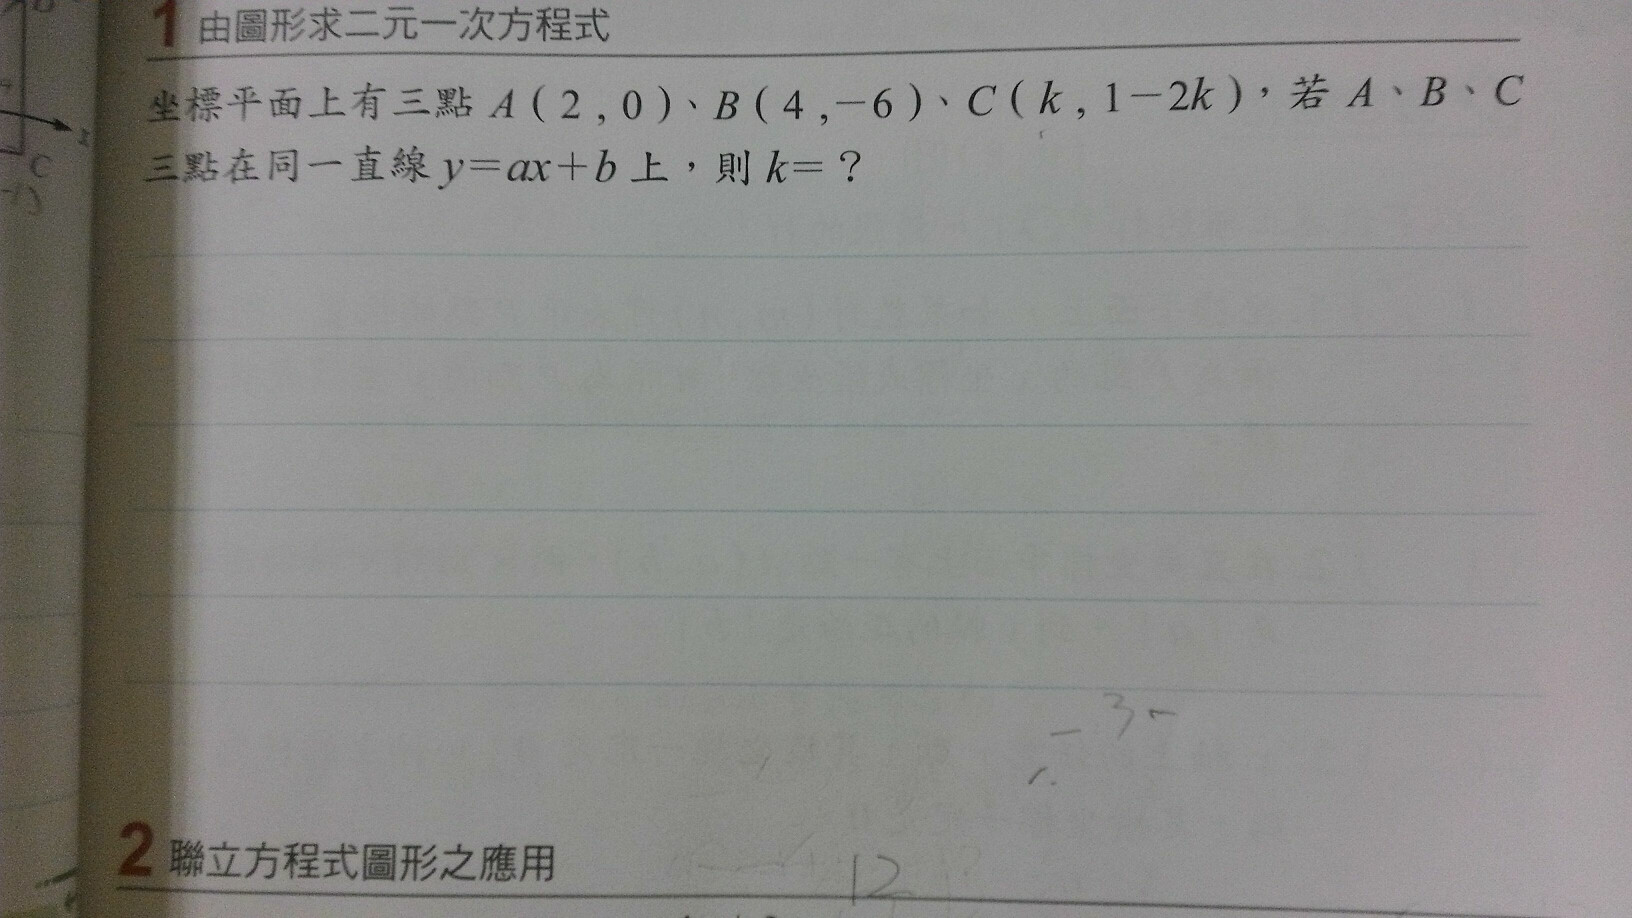 1 由圖形求二元一次方程式
坐標平面上有三點 A ( 2 , 0 )、B ( 4 , －6 )、C ( k , 1－2k )，若 A、B、C
三點在同一直線 y＝ax＋b 上，則 k＝？
C
-1)
－3－
2 聯立方程式圖形之應用
12